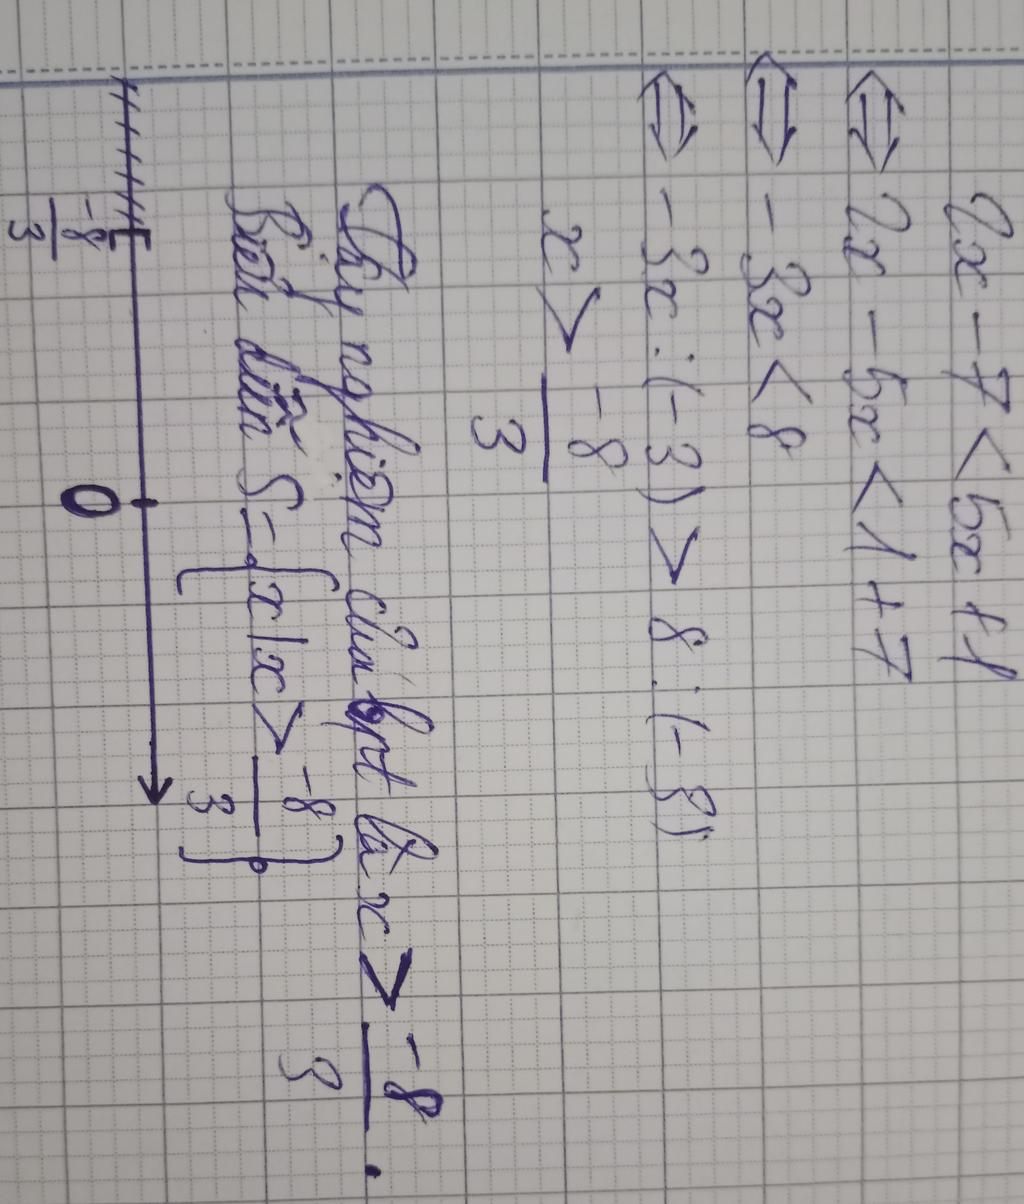 2x - 7 < 5x + 1
⇔ 2x - 5x < 1 + 7
⇔ - 3x < 8
⇔ - 3x : (- 3) > 8 : (- 3)
x > -8/3
Vậy nghiệm của bpt là x > -8/3 .
Biểu diễn S = {x | x > -8/3}
-8/3 0